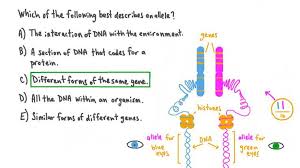 Which of the following best describes an allele?
A) The interaction of DNA with the environment.
B) A section of DNA that codes for a
protein.
C) Different forms of the same gene.
D) All the DNA within an organism.
E) Similar forms of different genes.
genes
histones
allele for
blue
eyes
DNA
allele for
green
eyes